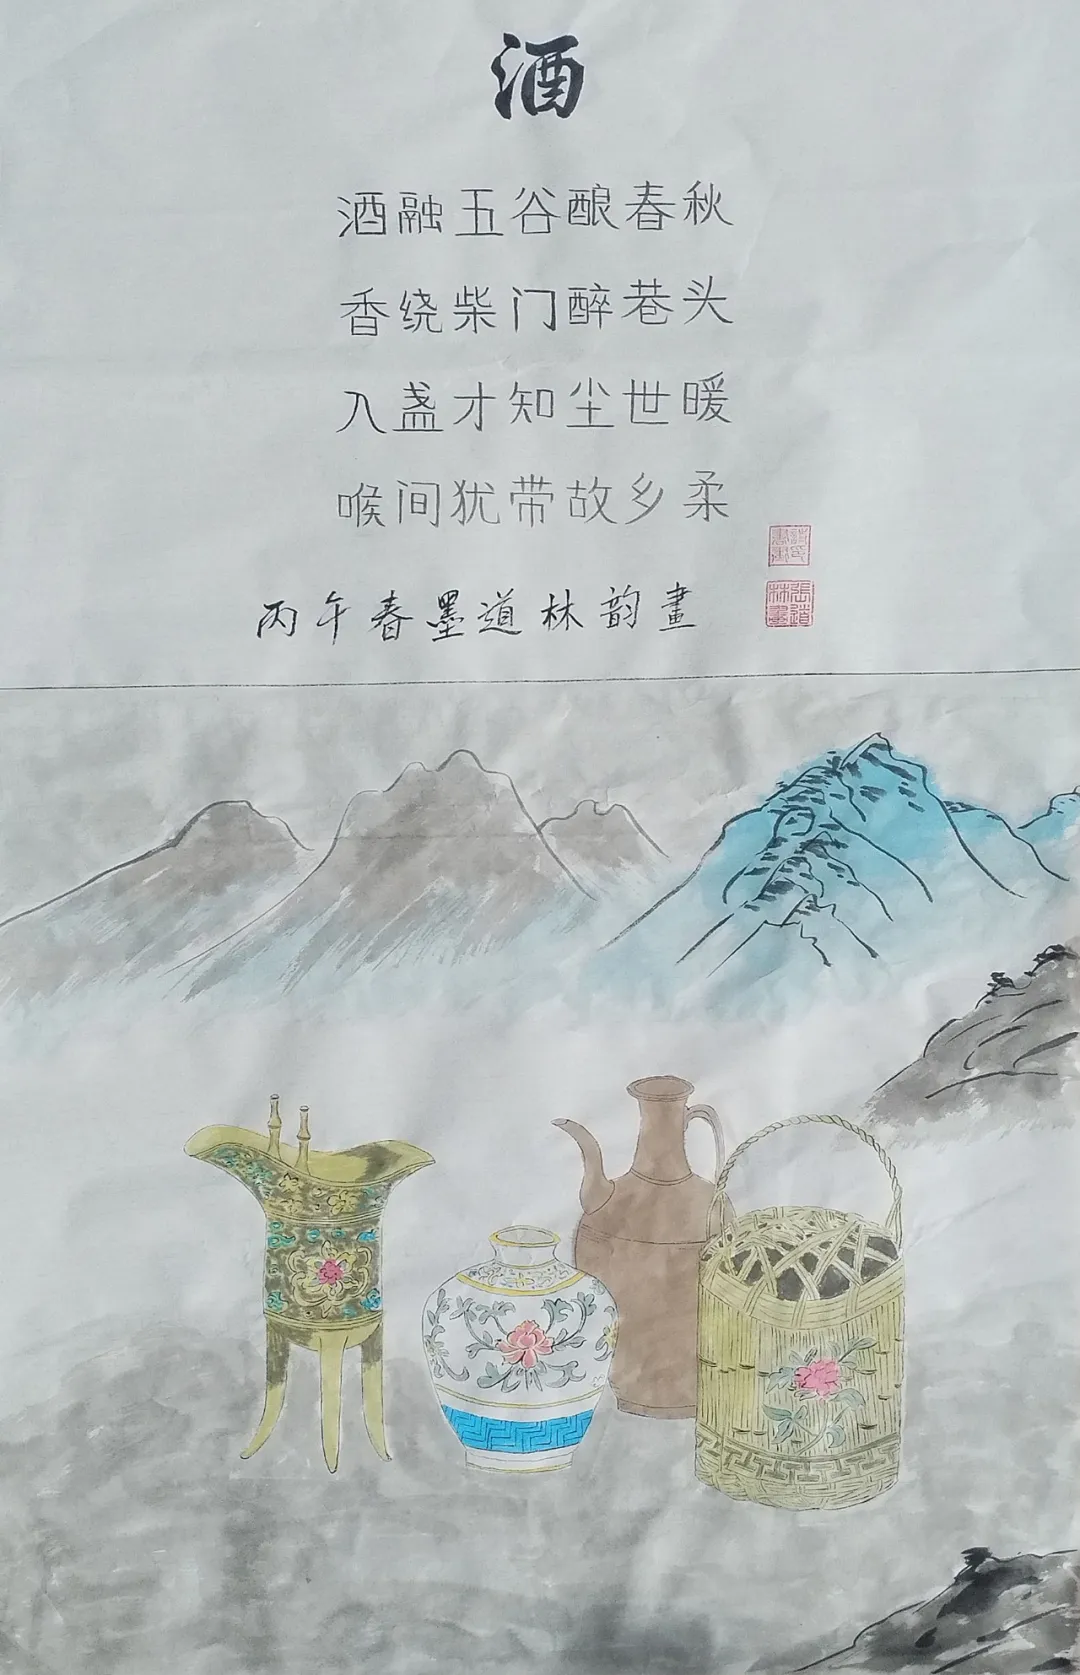 酒
酒融五谷酿春秋
香绕柴门醉巷头
入盏才知尘世暖
喉间犹带故乡柔
丙午春墨道林韵畫
張道
林畫